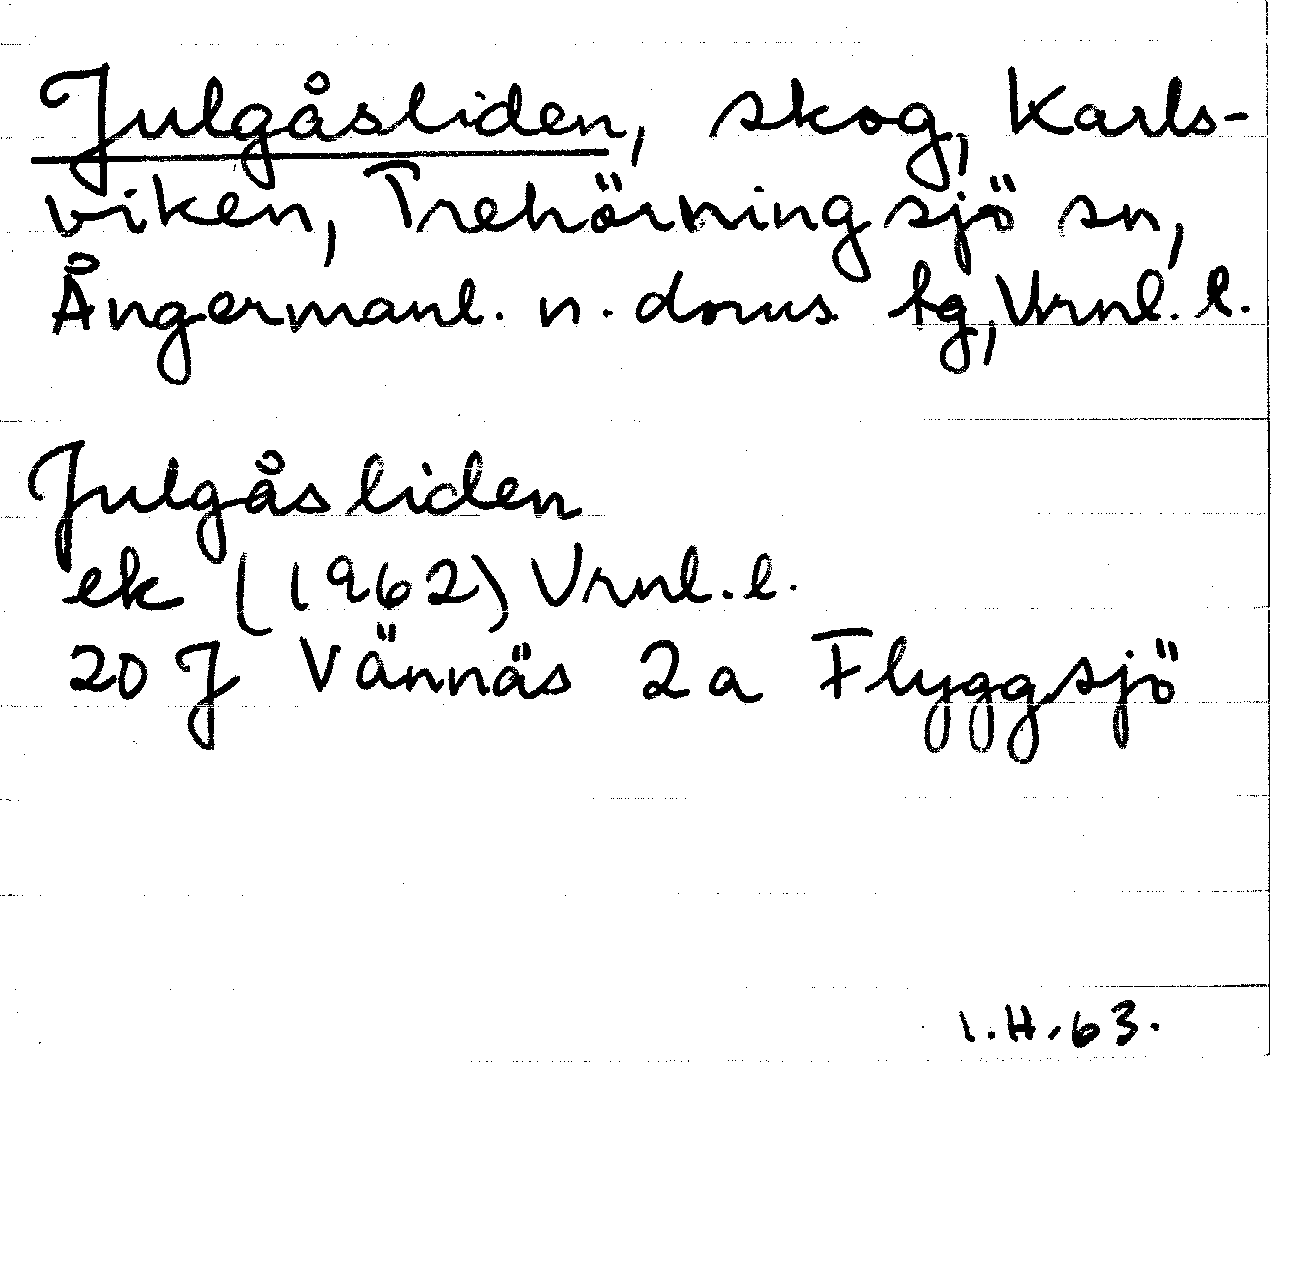 Julgåsliden, skog, Karls-
viken, Trehörningsjö sn,
Ångermanl. n. doms tg, Vrnl. l.
Julgåsliden
ek (1962) Vrnl. l.
20 J Vännäs 2 a Flyggsjö
I.H.63.